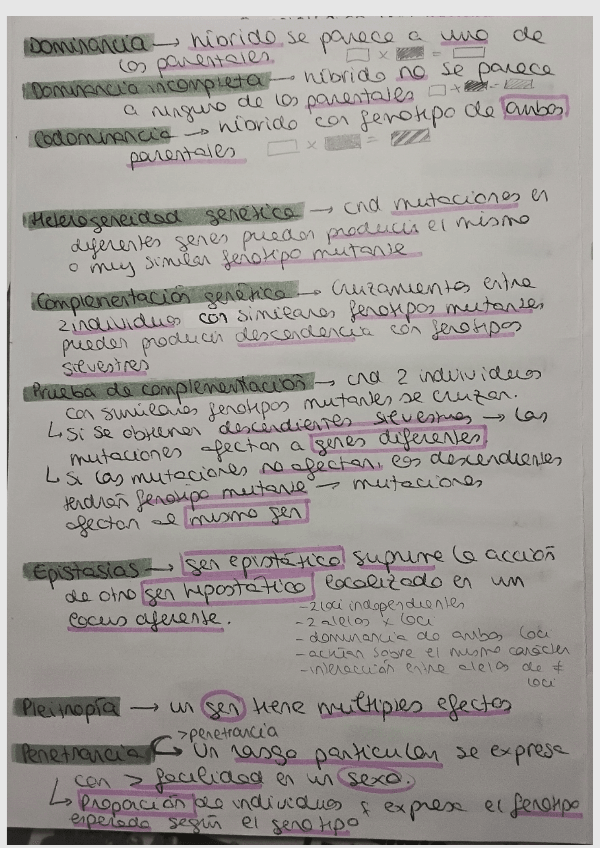 Dominancia → híbrido se parece a uno de
los parentales □ x ▨ = □
Dominancia incompleta → híbrido no se parece
a ninguno de los parentales □ + ▨ = ▨
Codominancia → híbrido con fenotipo de ambos
parentales □ x ▨ = ▨
Heterogeneidad genética → cnd mutaciones en
diferentes genes pueden producir el mismo
o muy similar fenotipo mutante
Complementación genética → Cruzamientos entre
2 individuos con similares fenotipos mutantes
pueden producir descendencia con fenotipos
silvestres
Prueba de complementación → cnd 2 individuos
con similares fenotipos mutantes se cruzan.
↳ Si se obtienen descendientes silvestres → las
mutaciones afectan a genes diferentes
↳ Si las mutaciones no afectan, los descendientes
tendrán fenotipo mutante → mutaciones
afectan al mismo gen
Epistasias → gen epistático suprime la acción
de otro gen hipostático localizado en un
locus diferente.
- 2 loci independientes
- 2 alelos x loci
- dominancia de ambos loci
- actúan sobre el mismo carácter
- interacción entre alelos de ≠
loci
Pleitropía → un gen tiene multiples efectos
>penetrancia
Penetrancia → Un rasgo particular se expresa
con > facilidad en un sexo.
↳ Propación de individuos q expresa el fenotipo
esperado según el genotipo